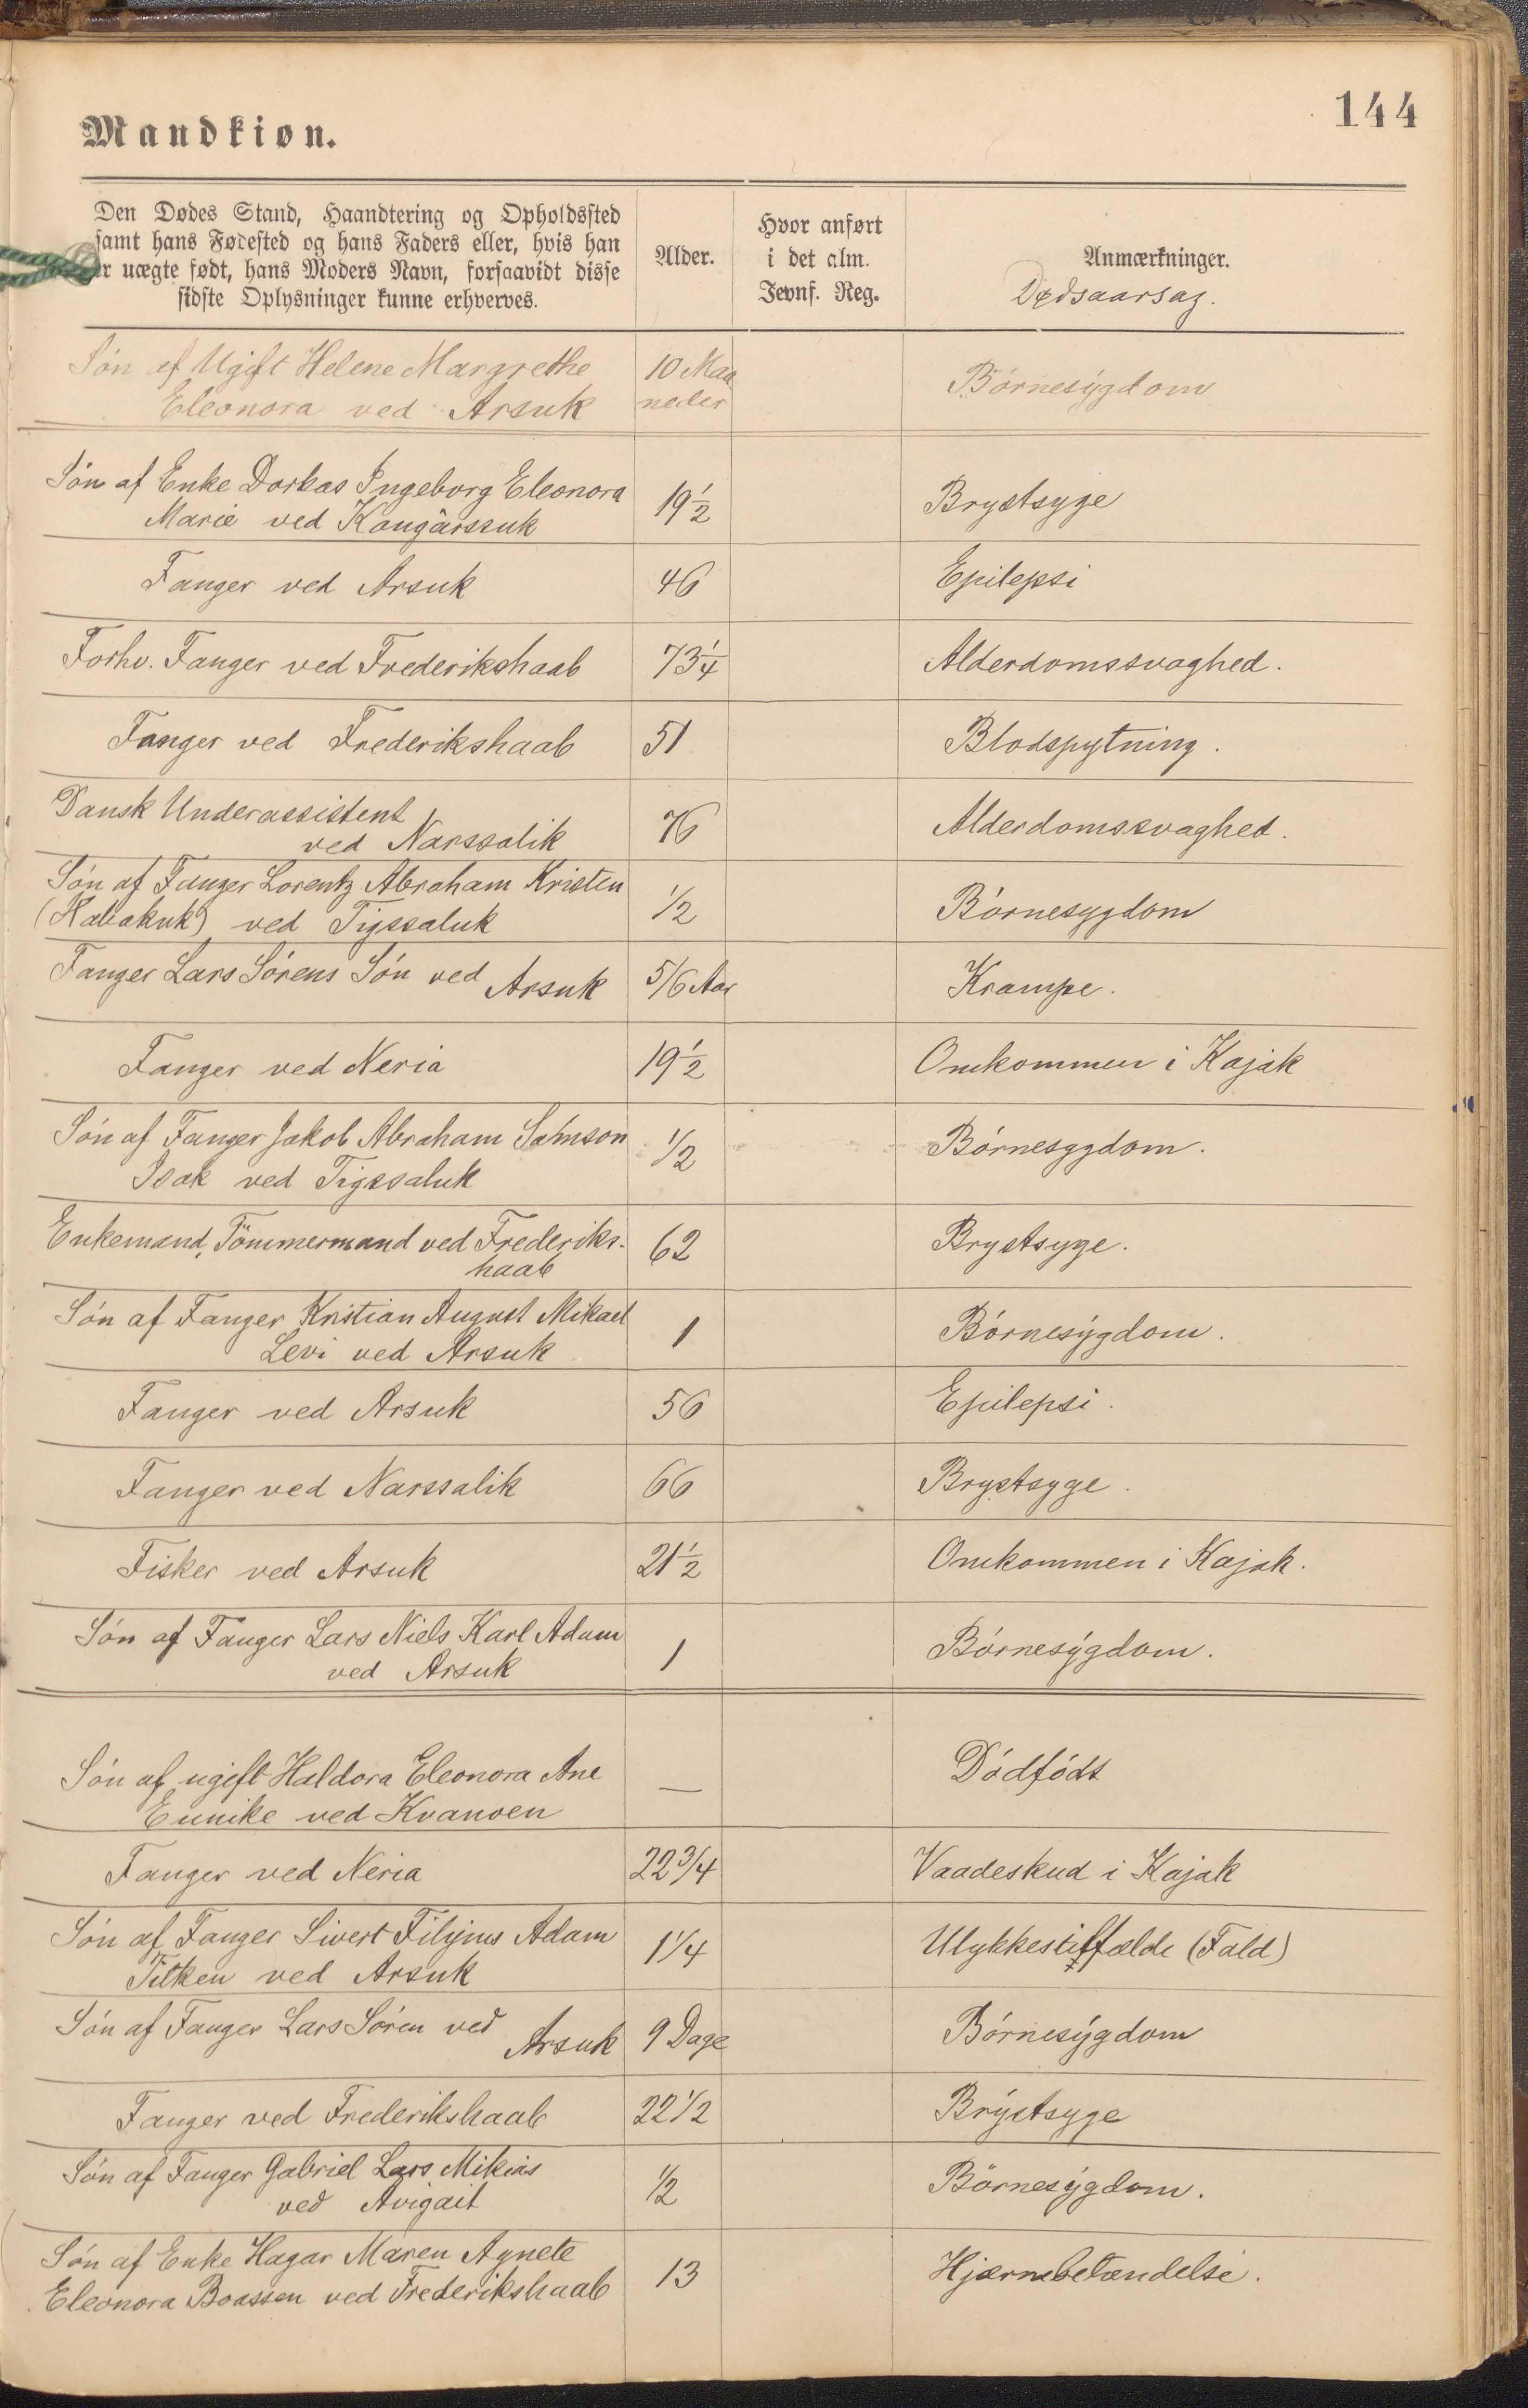 144
Mandkiøn.
Den Dødes Stand, Haandtering og Opholdssted
samt hans Fødested og hans Faders eller, hvis han
er uægte født, hans Moders Navn, forsaavidt disse
sidste Oplysninger kunne erhverves.
Alder.
Hvor anført
i det alm.
Jevnf. Reg.
Anmærkninger.
Dødsaarsag.
Søn af Ugift Helene Margrethe
Eleonora ved Arsuk
10 Maa
neder
Börnesygdom
Søn af Enke Dorkas Ingeborg Eleonora
Marie ved Kangârssuk
19 1/2
Brystsyge
Fanger ved Arsuk
46
Epilepsi
Forhv. Fanger ved Frederikshaab
73 1/4
Alderdomssvaghed.
Fanger ved Frederikshaab
51
Blodspytning.
Dansk Underassistent
ved Narssalik
76
Alderdomssvaghed.
Søn af Fanger Lorentz Abraham Kristen
(Habakuk) ved Tigssaluk
1/2
Börnesygdom
Fanger Lars Sörens Søn ved
Arsuk
5/6 Aar
Krampe.
Fanger ved Neria
19 1/2
Omkommen i Kajak
Søn af Fanger Jakob Abraham Samson
Isak ved Tigssaluk
1/2
Börnesygdom.
Enkemand, Tömmermand ved Frederiks-
haab
62
Brystsyge.
Søn af Fanger Kristian August Mikael
Levi ved Arsuk
1
Börnesygdom.
Fanger ved Arsuk
56
Epilepsi.
Fanger ved Narssalik
66
Brystsyge.
Fisker ved Arsuk
21 1/2
Omkommen i Kajak.
Søn af Fanger Lars Niels Karl Adam
ved Arsuk
1
Börnesygdom.
Søn af ugift Haldora Eleonora Ane
Eunike ved Kvanøen
—
Dödfödt
Fanger ved Neria
22 3/4
Vaadeskud i Kajak
Søn af Fanger Sivert Filipus Adam
ved Arsuk
1 1/4
Ulykkestilfælde (Fald)
Søn af Fanger Lars Sören ved
Arsuk
9 Dage
Börnesygdom
Fanger ved Frederikshaab
22 1/2
Brystsyge
Søn af Fanger Gabriel Lars Mikias
ved Avigait
1/2
Börnesygdom.
Søn af Enke Hagar Maren Agnete
Eleonora Boassen ved Frederikshaab
13
Hjærnebetændelse.